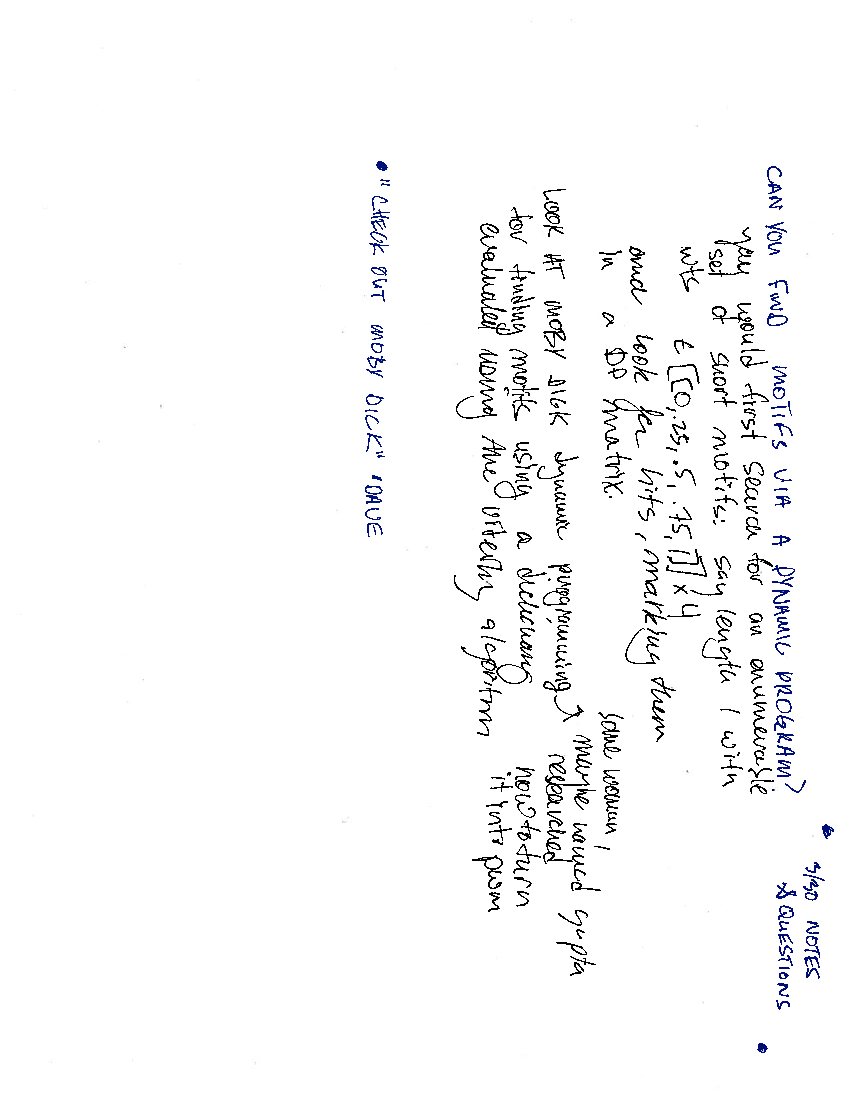 3/30 NOTES
& QUESTIONS
CAN YOU FIND MOTIFS VIA A DYNAMIC PROGRAM?
you would first search for an enumerable
set of short motifs: say length l with
wts ∈ [[0,.25,.5,.75,1]] x 4
and look for hits, marking them
in a DP matrix.
LOOK AT MOBY DICK dynamic programming
for finding motifs using a dictionary
evaluated using the viterbi algorithm
some woman,
maybe named gupta
researched
how to turn
it into pwm
"CHECK OUT MOBY DICK" - DAVE